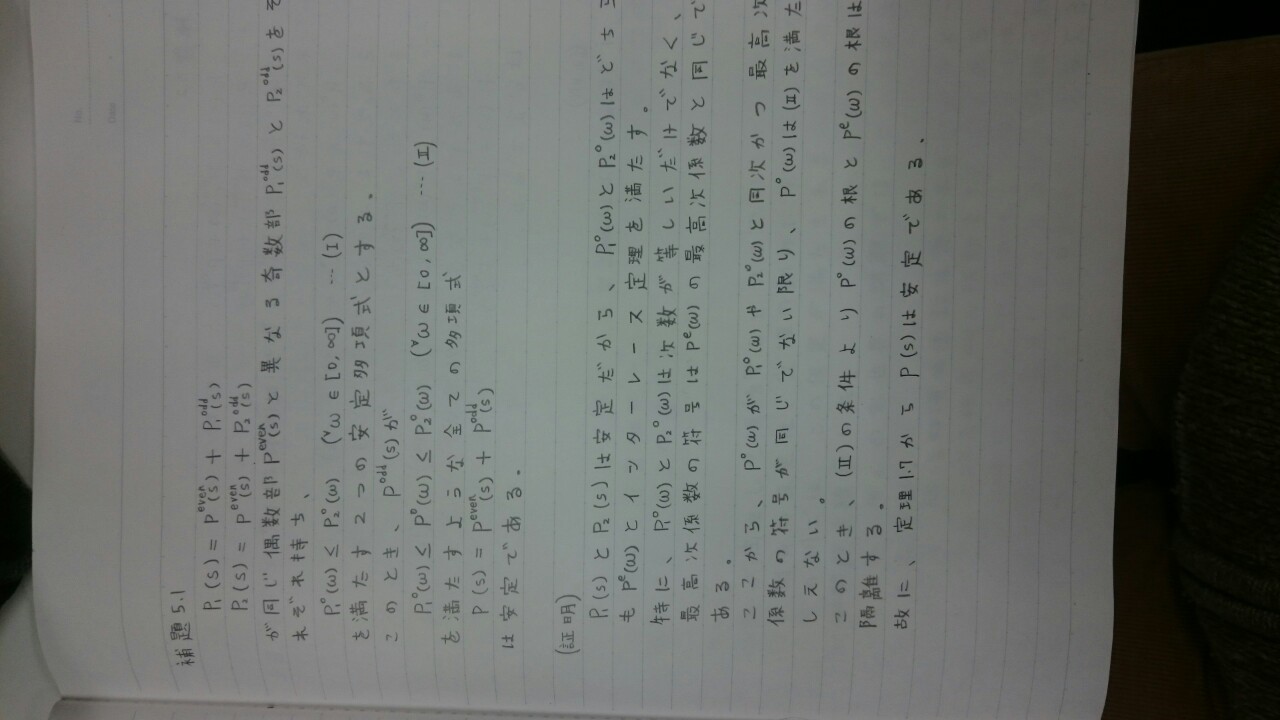 補題5.1
P₁(s) = P^even(s) + P₁^odd(s)
P₂(s) = P^even(s) + P₂^odd(s)
が同じ偶数部P^even(s)と異なる奇数部P₁^odd(s)とP₂^odd(s)をそ
れぞれ持ち、
P₁°(ω) ≤ P₂°(ω) (∀ω ∈ [0,∞]) … (I)
を満たす2つの安定多項式とする。
このとき、P^odd(s)が
P₁°(ω) ≤ P°(ω) ≤ P₂°(ω) (∀ω ∈ [0,∞]) … (II)
を満たすような全ての多項式
P(s) = P^even(s) + P^odd(s)
は安定である。
(証明)
P₁(s)とP₂(s)は安定だから、P₁°(ω)とP₂°(ω)はどちら
もP^e(ω)とインターレース定理を満たす。
特に、P₁°(ω)とP₂°(ω)は次数が等しいだけでなく、
最高次係数の符号はP^e(ω)の最高次係数と同じで
ある。
ここから、P°(ω)がP₁°(ω)やP₂°(ω)と同次かつ最高次
係数の符号が同じでない限り、P°(ω)は(II)を満た
しえない。
このとき、(II)の条件よりP°(ω)の根とP^e(ω)の根は
隔離する。
故に、定理1.7からP(s)は安定である。